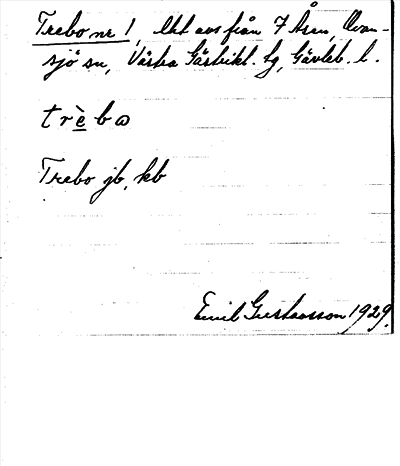 Trebo nr 1, lht avs från 7 Åsen, Ovan-
sjö sn, Västra Gästrikl. tg, Gävleb. l.
trèbω
Trebo jb, kb
Emil Gustavsson 1929.